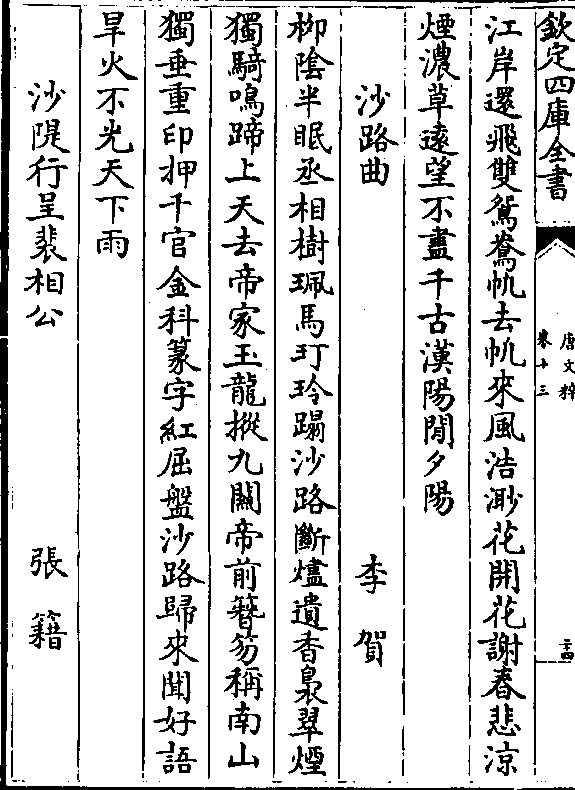 欽定四庫全書
唐文粹
卷十三
二十四
江岸還飛雙鴛鴦帆去帆來風浩渺花開花謝春悲涼
煙濃草遠望不盡千古漢陽閒夕陽
沙路曲 李賀
柳陰半眠丞相樹珮馬玎玲蹋沙路斷燼遺香裊翠煙
獨騎鳴蹄上天去帝家玉龍摐九關帝前簪笏稱南山
獨垂重印押千官金科篆字紅屈盤沙路歸來聞好語
旱火不光天下雨
沙隄行呈裴相公 張籍